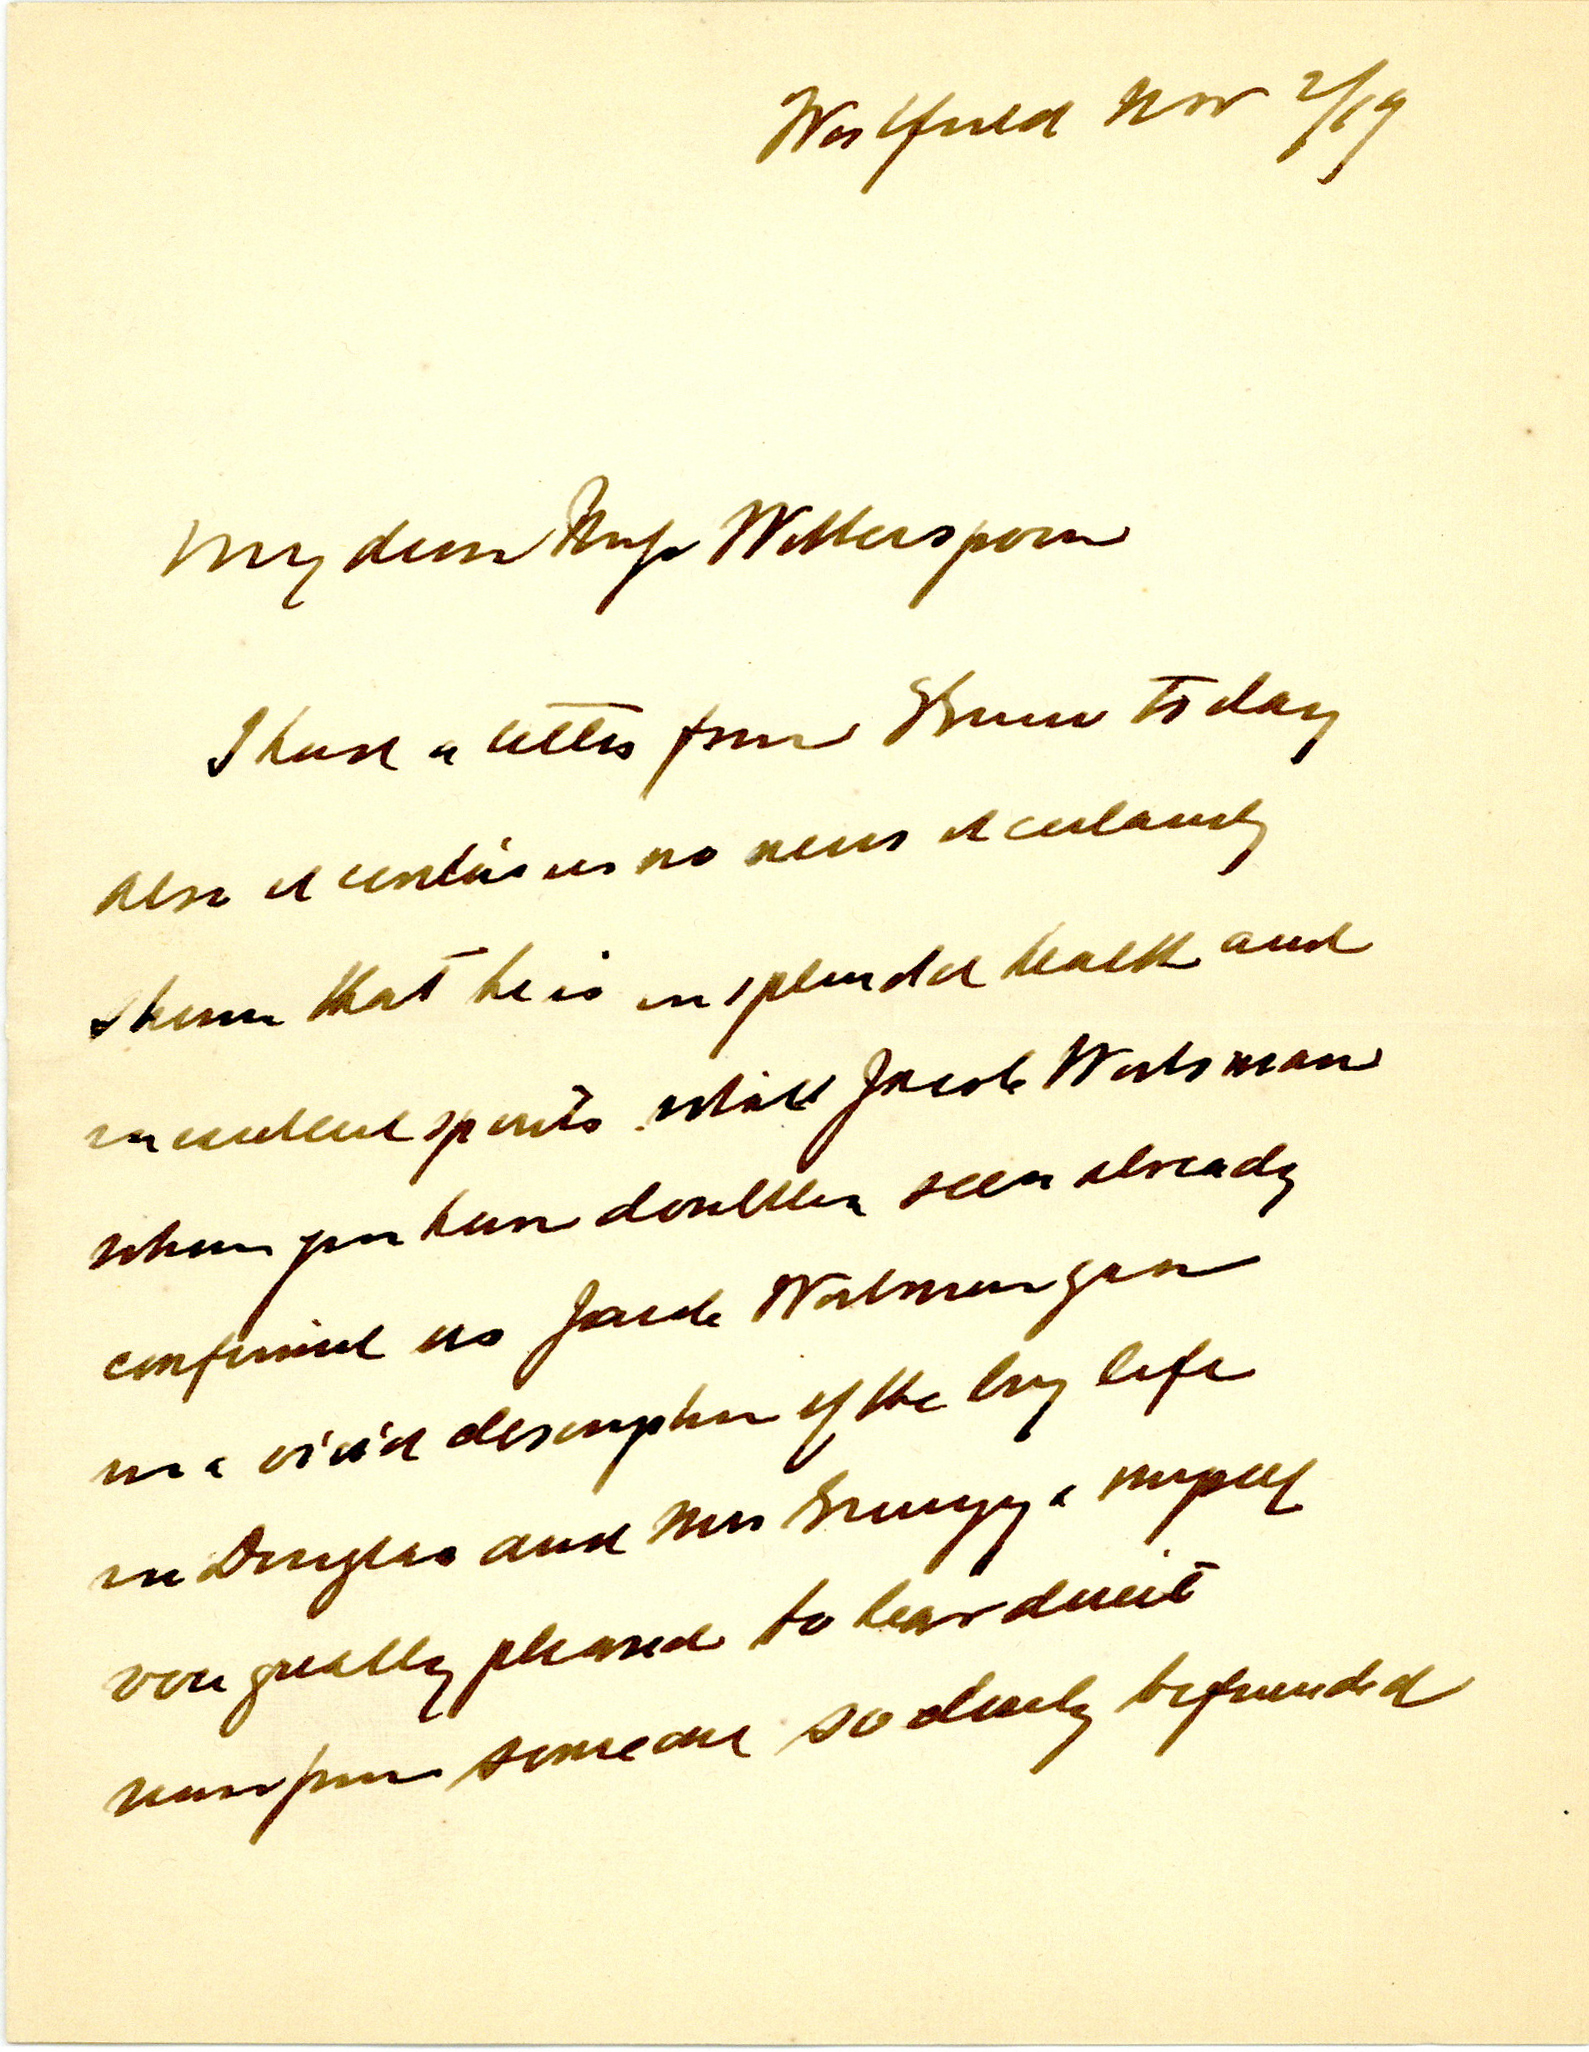 Westfield Nov 2/19
My dear Witterspoon
I have a letter from today
it contains no news it certainly
shows that he is in splendid health and
in excellent spirits while Jacob Workman
whom you have doubtless seen already
Jacob
in a vivid description of the boy life
in Douglas and Mrs & myself
were greatly pleased to hear direct
news from someone so dearly befriended